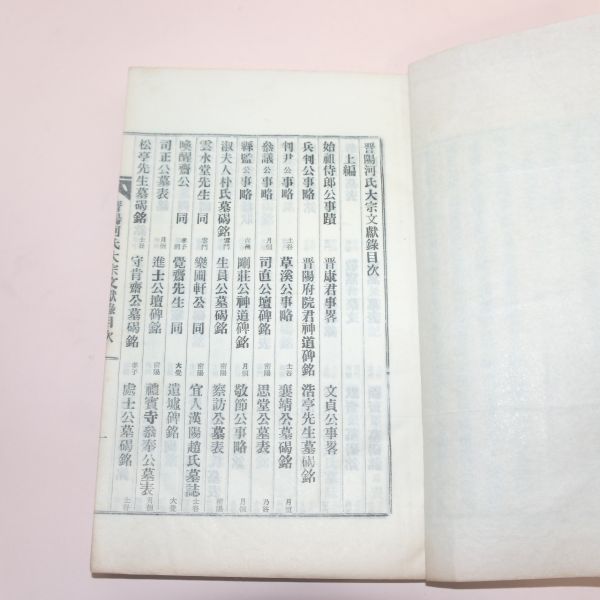 晋陽河氏大宗文獻錄目次
上編
始祖侍郎公事蹟 晋康君事畧 文貞公事畧
兵判公事略 晋陽府院君神道碑銘 浩亭先生墓碣銘
判尹公事略 士谷 草溪公事略 士谷 襄靖公墓碣銘 月橫
叅議公事略 月橫 司直公壇碑銘 思堂公墓表 乃谷
縣監公事略 剛莊公神道碑銘 月橫 敬節公事略 月橫
淑夫人朴氏墓碣銘 雲門 生員公墓碣銘 密陽 察訪公墓表 密陽
雲水堂先生 同 雲門 樂圃軒公 同 密陽 宜人漢陽趙氏墓誌 士谷
喚醒齋公 同 覺齋先生 同 大覺 遺墟碑銘 大覺
司正公墓表 月橫 進士公壇碑銘 禮賓寺叅奉公墓表 月橫
松亭先生墓碣銘 士谷 守肯齋公墓碣銘 處士公墓碣銘 士谷
晋陽河氏大宗文獻錄目次